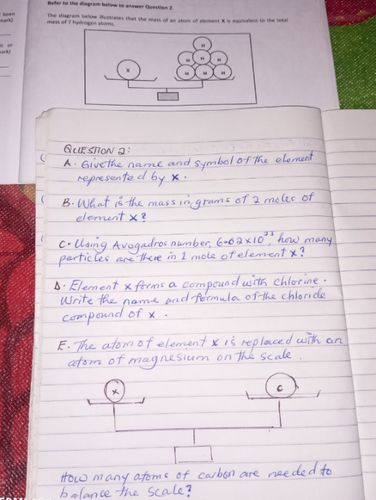 Refer to the diagram below to answer Question 2.
The diagram below illustrates that the mass of an atom of element X is equivalent to the total
mass of 7 hydrogen atoms.
H
H H
H H H H
X
QUESTION 2:
A. Give the name and symbol of the element
represented by x.
B. What is the mass in grams of 2 moles of
element x?
C. Using Avogadros number, 6.02 x 10²³, how many
particles are there in 1 mole of element x?
D. Element x forms a compound with chlorine.
Write the name and formula of the chloride
compound of x.
E. The atom of element x is replaced with an
atom of magnesium on the scale.
X
C
How many atoms of carbon are needed to
balance the scale?